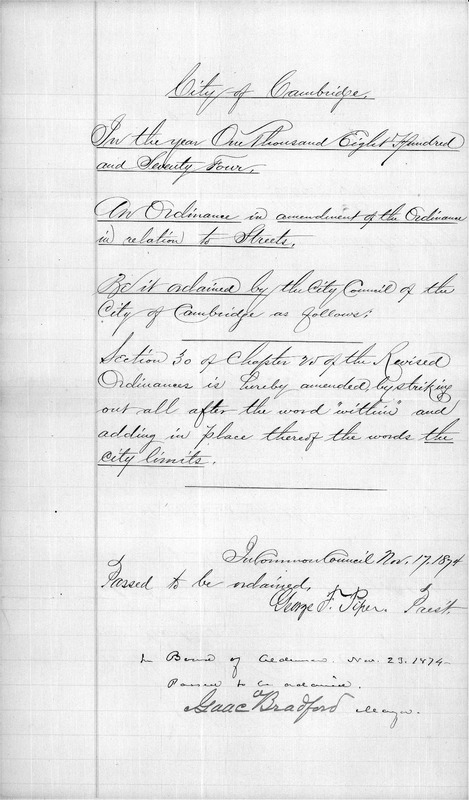 City of Cambridge.
In the year One Thousand Eight Hundred
and Seventy Four,
An Ordinance in amendment of the Ordinance
in relation to Streets.
Be it ordained by the City Council of the
City of Cambridge as follows:
Section 30 of Chapter of the Revised
Ordinances is hereby amended, by striking
out all after the word "within" and
adding in place thereof the words the
city limits.
In Common Council Nov. 17. 1874
Passed to be ordained,
George F. Piper. Prest.
In Board of Aldermen. Nov. 23. 1874
Passed to be ordained.
Isaac Bradford Mayor.